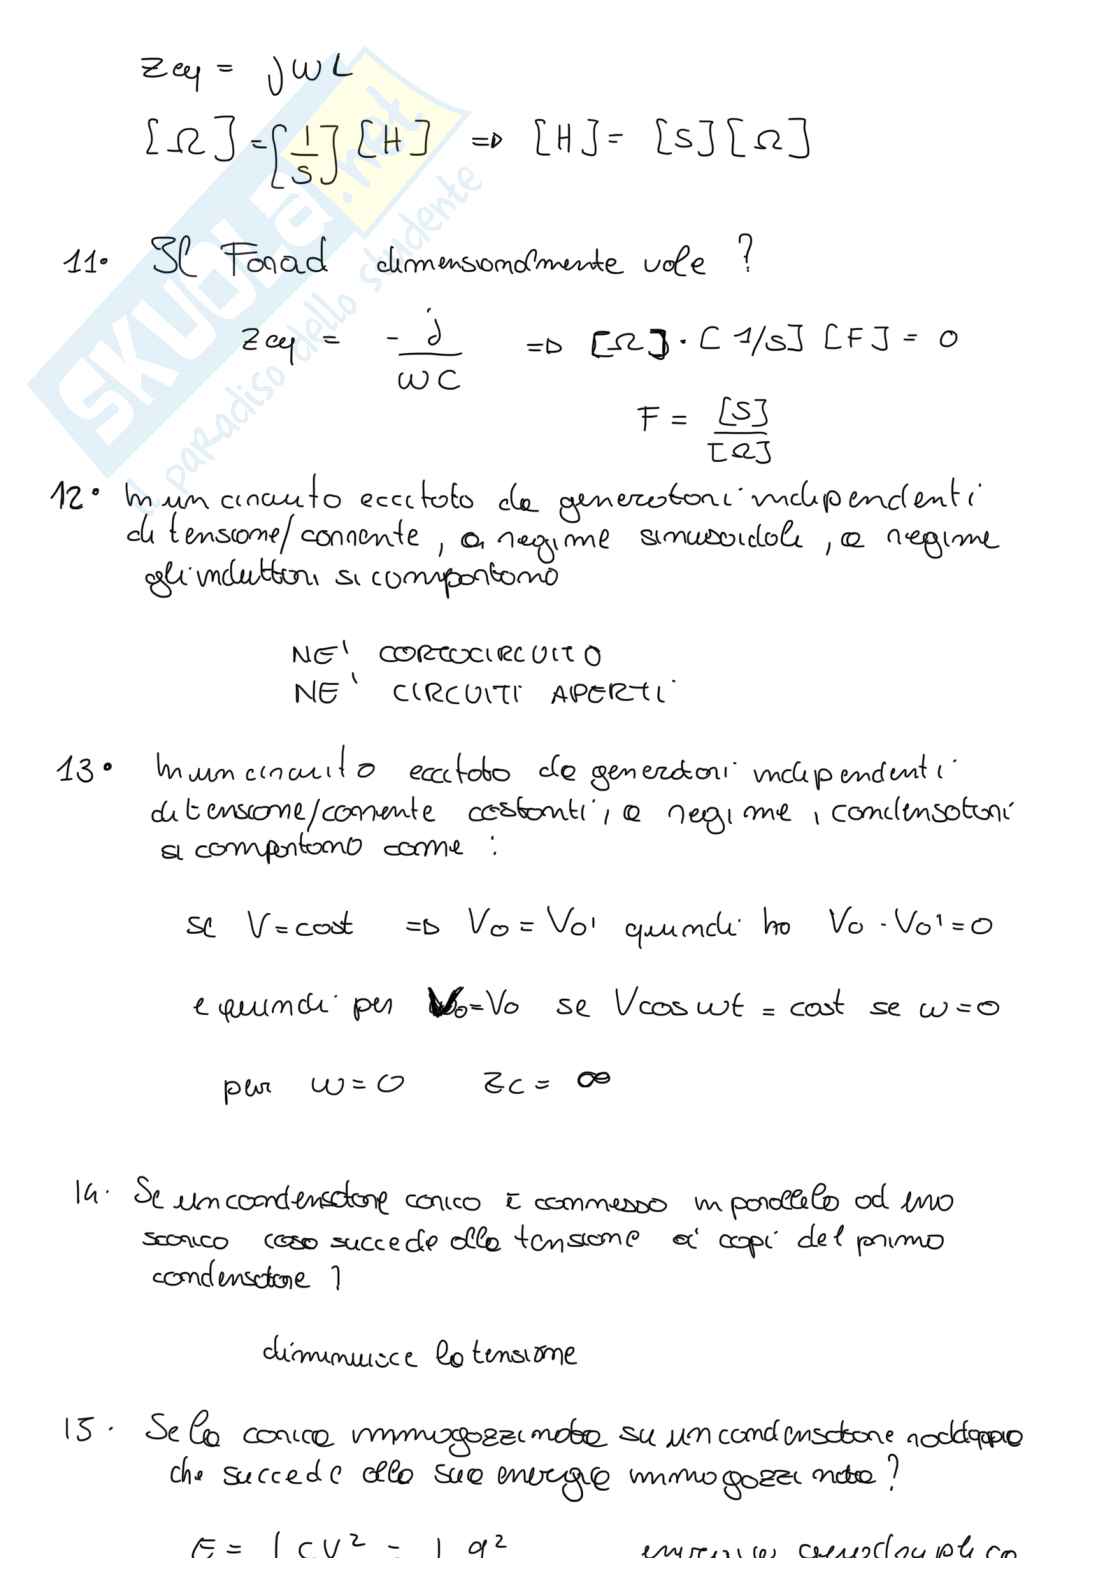 Zeq = jωL
[Ω] = [1/s] [H] => [H] = [s][Ω]
SKUOLA.net
il paradiso dello studente
11. Il Farad dimensionalmente vale ?
Zeq = - j/ωC => [Ω] · [1/s] [F] = 0
F = [s]/[Ω]
12. In un circuito eccitato da generatori indipendenti
di tensione/corrente, a regime sinusoidale, a regime
gli induttori si comportano
NE' CORTOCIRCUITO
NE' CIRCUITI APERTI
13. In un circuito eccitato da generatori indipendenti
di tensione/corrente costanti, a regime, i condensatori
si comportano come :
se V = cost => Vo = Vo' quindi ho Vo - Vo' = 0
e quindi per Vo = Vo se V cos ωt = cost se ω = 0
per ω = 0 Zc = ∞
14. Se un condensatore carico è connesso in parallelo ad uno
scarico cosa succede alla tensione ai capi del primo
condensatore ?
diminuisce la tensione
15. Se la carica immagazzinata su un condensatore raddoppia
che succede alla sua energia immagazzinata ?
E = 1 CV² = 1 q²